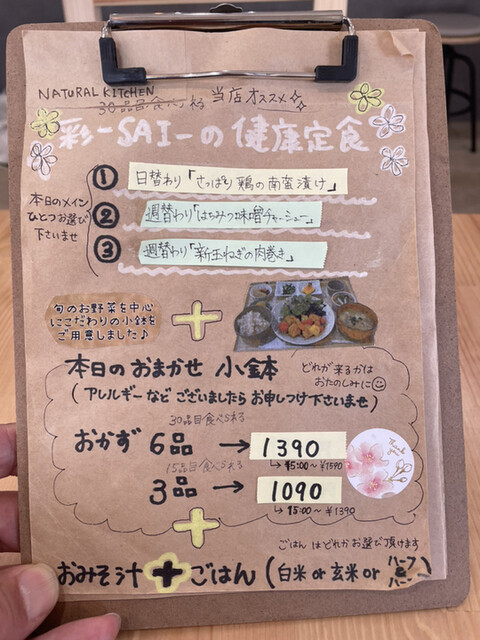 NATURAL KITCHEN
30品目食べれる 当店オススメ
彩-SAI-の健康定食
本日のメイン
ひとつお選び
下さいませ
① 日替わり「さっぱり鶏の南蛮漬け」
② 週替わり「はちみつ味噌チャーシュー」
③ 週替わり「新玉ねぎの肉巻き」
旬のお野菜を中心
にこだわりの小鉢を
ご用意しました♪
+
本日のおまかせ 小鉢
どれが来るかは
おたのしみに☺
(アレルギーなどございましたらお申しつけ下さいませ)
30品目食べられる
おかず 6品 → 1390
↳ 15:00~ ¥1590
15品目食べられる
3品 → 1090
↳ 15:00~ ¥1390
+
ごはんはどれかお選び頂けます
おみそ汁+ごはん(白米or玄米orハーフ&ハーフ)